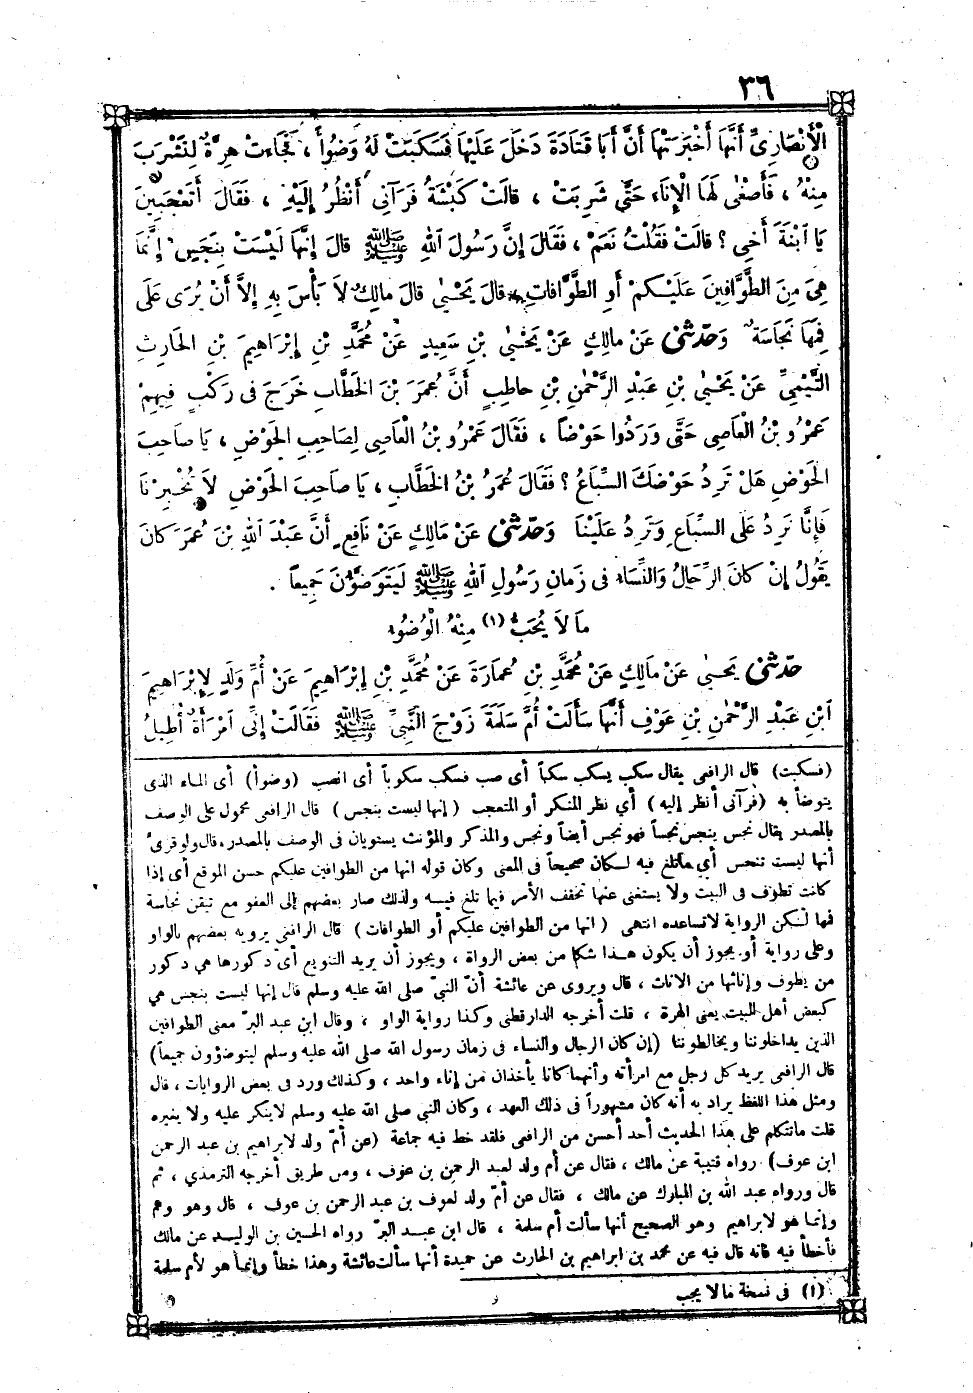 ٣٦
الْأَنْصَارِىِّ أَنَّهَا أَخْبَرَتْهَا أَنَّ أَبَا قَتَادَةَ دَخَلَ عَلَيْهَا فَسَكَبَتْ لَهُ وَضُوأً ، فَجَاءَتْ هِرَّةٌ لِتَشْرَبَ
مِنْهُ ، فَأَصْغَى لَهَا الْإِنَاءَ حَتَّى شَرِبَتْ ، قَالَتْ كَبْشَةُ فَرَآنِى أَنْظُرُ إِلَيْهِ ، فَقَالَ أَتَعْجَبِينَ
يَا ابْنَةَ أَخِى ؟ قَالَتْ فَقُلْتُ نَعَمْ ، فَقَالَ إِنَّ رَسُولَ اللهِ ﷺ قَالَ إِنَّهَا لَيْسَتْ بِنَجَسٍ إِنَّمَا
هِىَ مِنَ الطَّوَّافِينَ عَلَيْكُمْ أَوِ الطَّوَّافَاتِ * قَالَ يَحْيَى قَالَ مَالِكٌ لاَ بَأْسَ بِهِ إِلاَّ أَنْ يُرَى عَلَى
فَمِهَا نَجَاسَةٌ وَحَدَّثَنِى عَنْ مَالِكٍ عَنْ يَحْيَى بْنِ سَعِيدٍ عَنْ مُحَمَّدِ بْنِ إِبْرَاهِيمَ بْنِ الحَارِثِ
التَّيْمِىِّ عَنْ يَحْيَى بْنِ عَبْدِ الرَّحْمٰنِ بْنِ حَاطِبٍ أَنَّ عُمَرَ بْنَ الخَطَّابِ خَرَجَ فِى رَكْبٍ فِيهِمْ
عَمْرُو بْنُ الْعَاصِى حَتَّى وَرَدُوا حَوْضاً ، فَقَالَ عَمْرُو بْنُ الْعَاصِى لِصَاحِبِ الحَوْضِ ، يَا صَاحِبَ
الحَوْضِ هَلْ تَرِدُ حَوْضَكَ السِّبَاعُ ؟ فَقَالَ عُمَرُ بْنُ الخَطَّابِ ، يَا صَاحِبَ الحَوْضِ لاَ تُخْبِرْنَا
فَإِنَّا نَرِدُ عَلَى السِّبَاعِ وَتَرِدُ عَلَيْنَا وَحَدَّثَنِى عَنْ مَالِكٍ عَنْ نَافِعٍ أَنَّ عَبْدَ اللهِ بْنَ عُمَرَ كَانَ
يَقُولُ إِنْ كَانَ الرِّجَالُ وَالنِّسَاءُ فِى زَمَانِ رَسُولِ اللهِ ﷺ لَيَتَوَضَّؤُنَ جَمِيعاً .
مَا لاَ يُحَبُّ (١) مِنْهُ الْوُضُوءُ
حَدَّثَنِى يَحْيَى عَنْ مَالِكٍ عَنْ مُحَمَّدِ بْنِ عُمَارَةَ عَنْ مُحَمَّدِ بْنِ إِبْرَاهِيمَ عَنْ أُمِّ وَلَدٍ لِإِبْرَاهِيمَ
ابْنِ عَبْدِ الرَّحْمٰنِ بْنِ عَوْفٍ أَنَّهَا سَأَلَتْ أُمَّ سَلَمَةَ زَوْجَ النَّبِىِّ ﷺ فَقَالَتْ إِنِّى امْرَأَةٌ أُطِيلُ
(فسكبت) قال الرافعى يقال سكب يسكب سكباً أى صب فسكب سكوباً أى انصب (وضوأ) أى الماء الذى
يتوضأ به (فرآنى أنظر إليه) أي نظر المنكر أو المتعجب (إنها ليست بنجس) قال الرافعى محمول على الوصف
بالمصدر يقال نجس ينجس نجساً فهو نجس أيضاً ونجس والمذكر والمؤنث يستويان فى الوصف بالمصدر، قال ولو قرئ
أنها ليست تنجس أي ماتلغ فيه لكان صحيحاً فى المعنى وكان قوله انها من الطوافين عليكم حسن الموقع أى إذا
كانت تطوف فى البيت ولا يستغنى عنها تخفف الأمر فيما تلغ فيسه ولذلك صار بعضهم إلى العفو مع تيقن نجاسة
فمها لكن الرواية لاتساعده انتهى (انها من الطوافين عليكم أو الطوافات) قال الرافعى يرويه بعضهم بالواو
وعلى رواية أو يجوز أن يكون هذا شكا من بعض الرواة ، ويجوز أن يريد التنويع أى ذكورها هي ذكور
من يطوف وإناثها من الاناث ، قال ويروى عن عائشة أنّ النبيّ صلى الله عليه وسلم قال إنها ليست بنجس هى
كبعض أهل البيت يعنى الهرة ، قلت أخرجه الدارقطنى وكذا رواية الواو ، وقال ابن عبد البرّ معنى الطوافين
الذين يداخلوننا ويخالطوننا (إن كان الرجال والنساء فى زمان رسول الله صلى الله عليه وسلم ليتوضؤون جميعاً)
قال الرافعى يريد كل رجل مع امرأته وأنهما كانا يأخذان من إناء واحد ، وكذلك ورد فى بعض الروايات ، قال
ومثل هذا اللفظ يراد به أنه كان مشهوراً فى ذلك العهد ، وكان النبي صلى الله عليه وسلم لاينكر عليه ولا يغيره
قلت ماتتكلم على هذا الحديث أحد أحسن من الرافعى فلقد خط فيه جماعة (عن أمّ ولد لابراهيم بن عبد الرحمن
ابن عوف) رواه قتيبة عن مالك ، فقال عن أم ولد لعبد الرحمن بن عوف ، ومن طريق أخرجه الترمذي ، ثم
قال ورواه عبد الله بن المبارك عن مالك ، فقال عن أمّ ولد لعوف بن عبد الرحمن بن عوف ، قال وهو وهم
وإنما هو لابراهيم وهو الصحيح أنها سألت أم سلمة ، قال ابن عبد البرّ رواه الحسين بن الوليد عن مالك
فأخطأ فيه فانه قال فيه عن محمد بن ابراهيم بن الحارث عن حميدة أنها سألت عائشة وهذا خطأ وإنما هو لأم سلمة
(١) فى نسخة مالا يجب